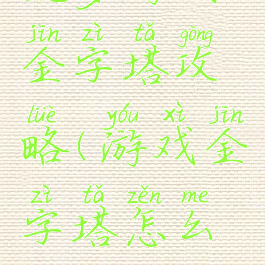 jīn zì tǎ gōng
金字塔攻
lüè yóu xì jīn
略(游戏金
zì tǎ zěn me
字塔怎么